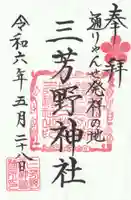 奉拝
通りゃんせ発祥の地
三芳野神社
令和六年五月二十八日